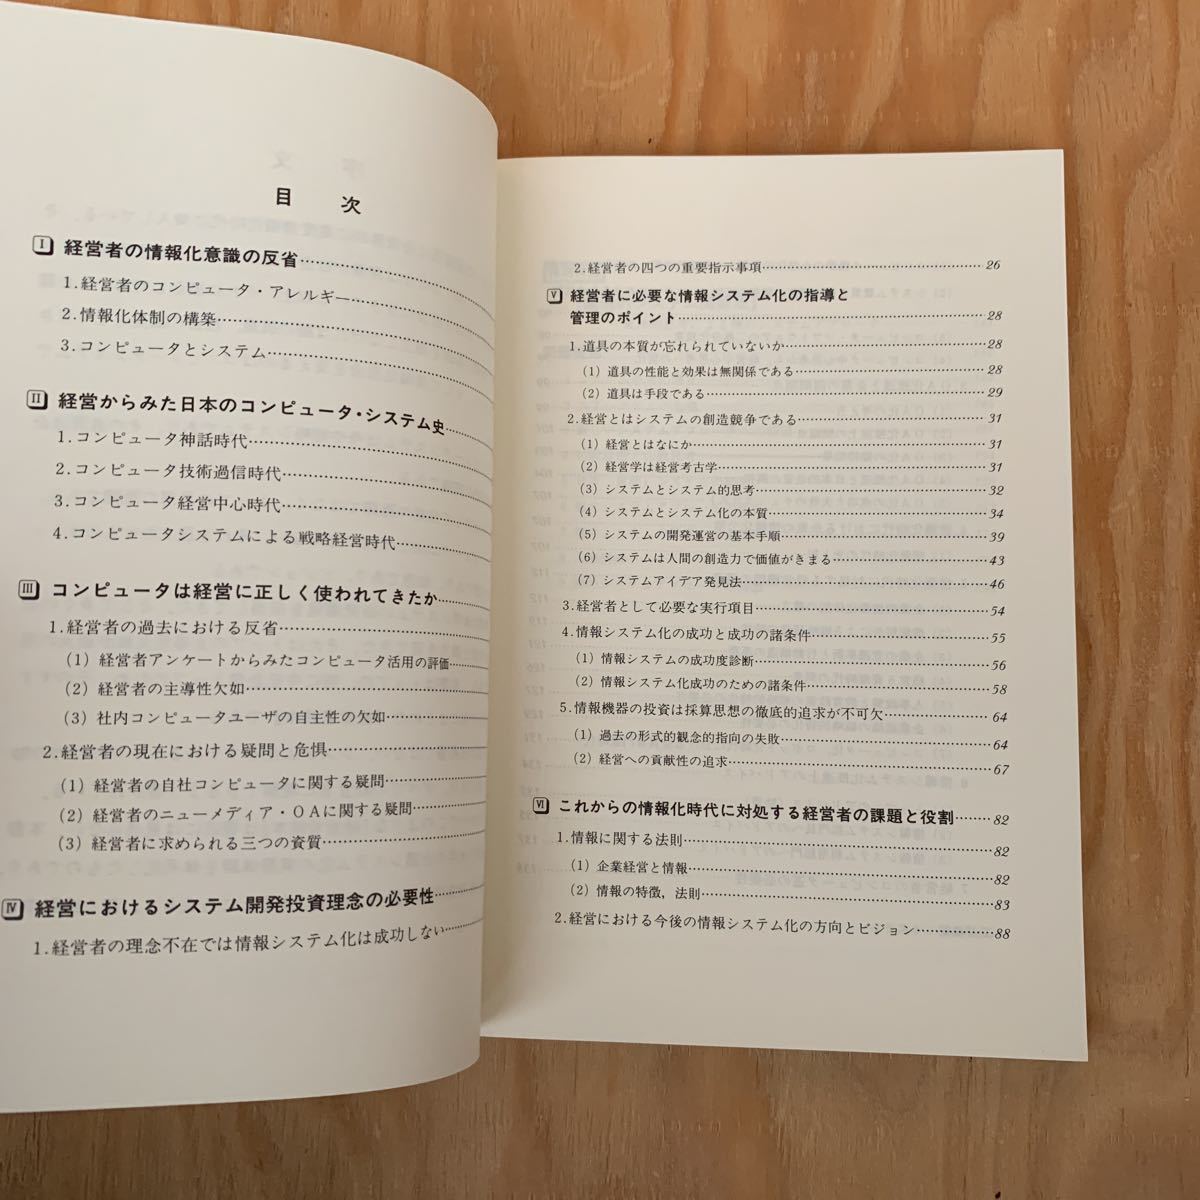 目　次
Ⅰ 経営者の情報化意識の反省……………………
1.経営者のコンピュータ・アレルギー……………
2.情報化体制の構築……………………
3.コンピュータとシステム……………………
Ⅱ 経営からみた日本のコンピュータ・システム史……
1.コンピュータ神話時代……………………
2.コンピュータ技術過信時代……………………
3.コンピュータ経営中心時代……………………
4.コンピュータシステムによる戦略経営時代……………
Ⅲ コンピュータは経営に正しく使われてきたか……
1.経営者の過去における反省……………………
(1) 経営者アンケートからみたコンピュータ活用の評価……
(2) 経営者の主導性欠如……………………
(3) 社内コンピュータユーザの自主性の欠如……………
2.経営者の現在における疑問と危惧……………………
(1) 経営者の自社コンピュータに関する疑問……………
(2) 経営者のニューメディア・OAに関する疑問…………
(3) 経営者に求められる三つの資質……………………
Ⅳ 経営におけるシステム開発投資理念の必要性……
1.経営者の理念不在では情報システム化は成功しない……
2.経営者の四つの重要指示事項……………………26
Ⅴ 経営者に必要な情報システム化の指導と
管理のポイント……………………28
1.道具の本質が忘れられていないか……………………28
(1) 道具の性能と効果は無関係である……………………28
(2) 道具は手段である……………………29
2.経営とはシステムの創造競争である……………………31
(1) 経営とはなにか……………………31
(2) 経営学は経営考古学……………………31
(3) システムとシステム的思考……………………32
(4) システムとシステム化の本質……………………34
(5) システムの開発運営の基本手順……………………39
(6) システムは人間の創造力で価値がきまる……………43
(7) システムアイデア発見法……………………46
3.経営者として必要な実行項目……………………54
4.情報システム化の成功と成功の諸条件……………………55
(1) 情報システムの成功度診断……………………56
(2) 情報システム化成功のための諸条件……………………58
5.情報機器の投資は採算思想の徹底的追求が不可欠…………64
(1) 過去の形式的観念的指向の失敗……………………64
(2) 経営への貢献性の追求……………………67
Ⅵ これからの情報化時代に対処する経営者の課題と役割……82
1.情報に関する法則……………………82
(1) 企業経営と情報……………………82
(2) 情報の特徴，法則……………………83
2.経営における今後の情報システム化の方向とビジョン…………88